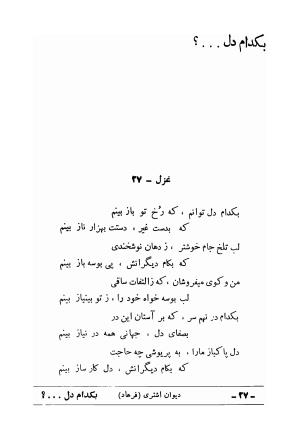 بکدام دل . . . ؟
غزل - ۲۷
بکدام دل توانم ، که رُخ تو باز بینم
که بدست غیر ، دستت بهزار ناز بینم
لب تلخ جام خوشتر ، ز دهان نوشخندی
که بکام دیگرانش ، پی بوسه باز بینم
من و کوی میفروشان ، که ز التفات ساقی
لب بوسه خواه خود را ، ز تو بینیاز بینم
بکدام در نهم سر ، که بر آستان این در
بصفای دل ، جهانی همه در نیاز بینم
دل پاکباز مارا ، به پریوشی چه حاجت
که بکام دیگرانش ، دل کار ساز بینم
- ۲۷ - دیوان اشتری (فرهاد) بکدام دل . . . ؟